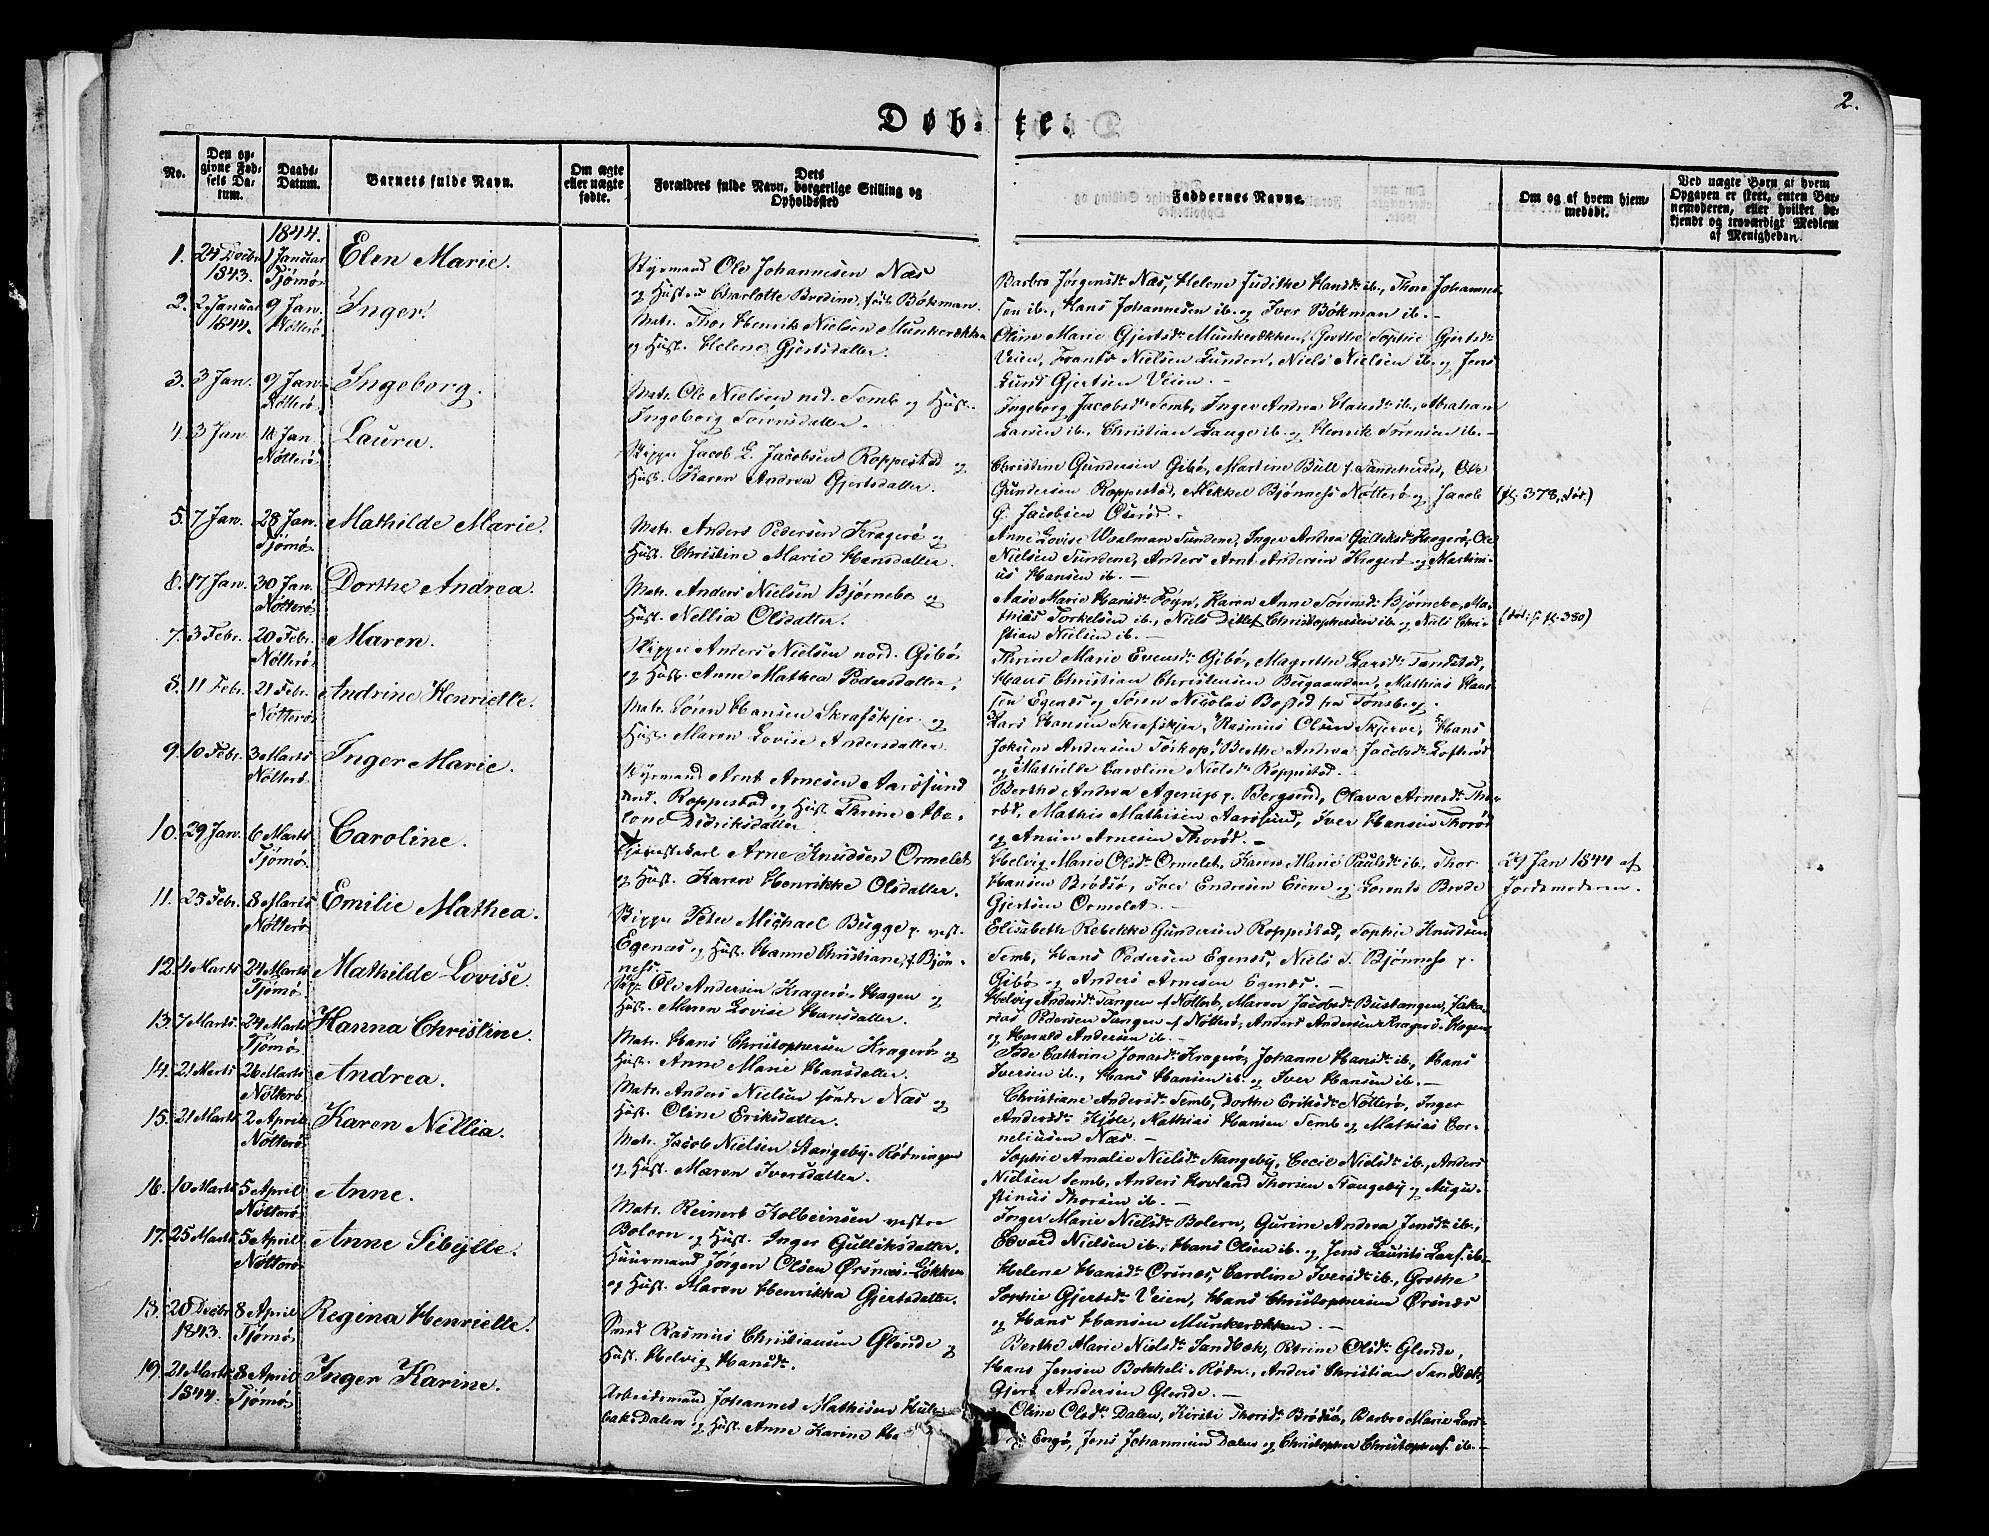 2.
Døb- te.
No.
Den op-
givne Fød-
sels Da-
tum.
Daabs-
Datum.
Barnets fulde Navn.
Om ægte
eller uægte
fødte.
Dets
Forældres fulde Navn, borgerlige Stilling og
Opholdssted
Faddernes Navne.
Om og af hvem hjem-
medøbt.
Ved uægte Børn af hvem
Opgaven er skeet, enten Bar-
nemoderen, eller hvilket be-
kjendt og troværdigt Medlem
af Menigheden.
1844.
1. 24 Decbr 1843. 1 Januar Tjømø Elen Marie.
Styrmand Ole Johannesen Næs
og Hustru Charlotte Brodine, født Bøkman.
Barbro Jørgensdr Næs, Helene Judithe Hansdr ib., Thore Johanne-
sen ib., Hans Johannesen ib. og Iver Bøkman ib. -
2. 2 Januar 1844. 9 Jan. Nøtterø Inger.
Matr. Thor Henrik Nielsen Munkerækken
og Hust. Helene Gjertsdatter.
Oline Marie Gjertsdr Munkerækken, Grethe Sophie Gjertsdr
Veien, Frants Nielsen Lunden, Niels Nielsen ib. og Jens
Lund Gjertsen Veien. -
3. 3 Jan. 9 Jan. Nøtterø Ingeborg.
Matr. Ole Nielsen ned. Semb og Hust.
Ingeborg Sørensdatter.
Ingeborg Jacobsdr Semb, Inger Andrea Hansdr ib., Abraham
Larsen ib., Christian Lange ib. og Henrik Sørensen ib. -
4. 3 Jan. Jan Nøtterø Laura.
Skipper Jacob L. Jacobsen Roppestad og
Hust. Karen Andrea Gjertsdatter.
Christine Gundersen Gibø, Martine Bull f. Sandeherred, Ole
Gundersen Roppestad, Mikkel Bjønness Nøtterø og Jacob
G. Jacobsen Østrød. -
(fl. 378, før)
5. 7 Jan. 28 Jan. Tjømø Mathilde Marie.
Matr. Anders Pedersen Kragerø og
Hust. Christine Marie Hansdatter.
Anne Lovise Wselman Sundene, Inger Andrea Gulliksdr Kragerø, Ole
Nielsen Sundene, Anders Arnt Andersen Kragerø og Martini-
us Hansen ib. -
8. 17 Jan. 30 Jan. Nøtterø Dorthe Andrea.
Matr. Anders Nielsen Bjørnebo og
Hust. Nellia Olsdatter.
Aase Marie Hansdr Føyn, Karen Anne Sørensdr Bjørnebo, Ma-
thias Torkelsen ib., Niels Ditlef Christophersen ib. og Niels Chri-
stian Nielsen ib. -
7. 3 Febr. 20 Febr. Nøtterø Maren.
Skipper Anders Nielsen nord. Gibø
og Hust. Anne Mathea Pedersdatter.
Thrine Marie Evensdr Gibø, Magrethe Larsdr Tandstad,
Hans Christian Christensen Bugaarden, Mathias Han-
sen Egenes og Søren Nicolai Bogstad fra Tønsberg.
8. 11 Febr. 21 Febr. Nøtterø Andrine Henriette.
Matr. Søren Hansen Skrafskjer og
Hust. Maren Lovise Andersdatter.
Lars Hansen Skrafskjer, Rasmus Olsen Skjerve, Hans
Jokum Andersen Torkop, Berthe Andrea Jacobsdr Lofterød
og Mathilde Caroline Nielsdr Roppestad. -
9. 10 Febr. 3 Marts Nøtterø Inger Marie.
Styrmand Arnt Arnesen Aarøsund
und. Roppestad og Hust. Thrine Abe-
lone Didriksdatter.
Berthe Andrea Agerup p. Bergsend, Olava Arnesdr Tho-
rød, Mathis Mathisen Aarøsund, Iver Hansen Thorød
og Anun Arnesen Thorød. -
10. 29 Jan. 6 Marts Tjømø. Caroline.
Tjenestekarl Arne Knudsen Ormelet
og Hust. Karen Henrikke Olsdatter.
Helvig Marie Olsdr Ormelet, Karen Marie Paulsdr ib., Thor
Hansen Brødsø, Iver Endresen Eiene og Lorents Brode
Gjertsen Ormelet. -
29 Jan 1844 af
Jordemoderen.
11. 25 Febr. 8 Marts Nøtterø. Emilie Mathea.
Skipper Peter Michael Bugge p. vest.
Egenæs og Hust. Hanne Christiane, f. Bjøn-
ness.
Elisabeth Rebekke Gundersen Roppestad, Sophie Knudsen
Semb, Hans Pedersen Egenes, Niels S. Bjønness p.
Gibø og Anders Arnesen Egenæs. -
12. 4 Marts 24 Marts Tjømø. Mathilde Lovise.
Skp. Ole Andersen Kragerø-Hagen og
Hust. Maren Lovise Hansdatter.
Helvig Andersdr Tangen af Nøtterø, Maren Jacobsdr Bustangen, Zaka-
rias Pedersen Tangen af Nøtterø, Anders Andersen Kragerø-Hagen
og Harald Andersen ib. -
13. 7 Marts. 24 Marts Tjømø. Hanna Christine.
Matr. Hans Christophersen Kragerø og
Hust. Anne Marie Hansdatter.
Cathrine Jonasdr Kragerø, Johanne Hansdr ib., Hans
Iversen ib., Hans Hansen ib. og Iver Hansen ib. -
14. 21 Marts 26 Marts Nøtterø. Andrea.
Matr. Anders Nielsen søndre Næs og
Hust. Oline Eriksdatter.
Christiane Andersdr Semb, Dorthe Eriksdr Nøtterø, Inger
Andersdr Kjøle, Mathias Hansen Semb og Mathias Cor-
neliusen Næs. -
15. 21 Marts 2 April Nøtterø. Karen Nillia.
Matr. Jacob Nielsen Stangeby-Rødningen
og Hust. Maren Iversdatter.
Sophie Amalie Nielsdr Stangeby, Cecil Nielsdr ib., Anders
Nielsen Semb, Anders Hovland Thorsen Stangeby og Augu-
stinus Thorsen ib. -
16. 10 Marts 5 April Nøtterø Anne.
Matr. Reinert Kolbeinsen vestre
Bolærn og Hust. Inger Gulliksdatter.
Inger Marie Nielsdr Bolærn, Gurine Andrea Jensdr ib.,
Edvard Nielsen ib., Hans Olsen ib. og Jens Laurits Lars. ib.
17. 25 Marts 5 April Nøtterø Anne Sibylle.
Huusmand Jørgen Olsen Ørsnæs-Løkken
og Hust. Maren Henrikka Gjertsdatter.
Helene Hansdr Ørsnæs, Caroline Iversdr ib., Grethe
Sophie Gjertsdr Veien, Hans Christophersen Ørsnæs
og Hans Hansen Munkerækken. -
18. 20 Decbr 1843. 8 April Tjømø. Regina Henriette.
Rasmus Christiansen Glende og
Hust. Helvig Hansdr.
Berthe Marie Nielsdr Sandbæk, Petrine Olsdr Glende,
Hans Jensen Bokkeli-Rødn., Anders Christian Sandbæk,
Gjert Andersen Glende. -
19. 21 Marts 1844. 8 April Tjømø. Inger Karine.
Arbeidsmand Johannes Mathisen Hol-
bæk-Dalen og Hust. Anne Karine Ha
Oline Olsdr Dalen, Kirsti Thorsdr Brødsø, Barbro Marie Lars-
dr Engø, Jens Johannesen Dalen og Christopher Christophers. ib. -